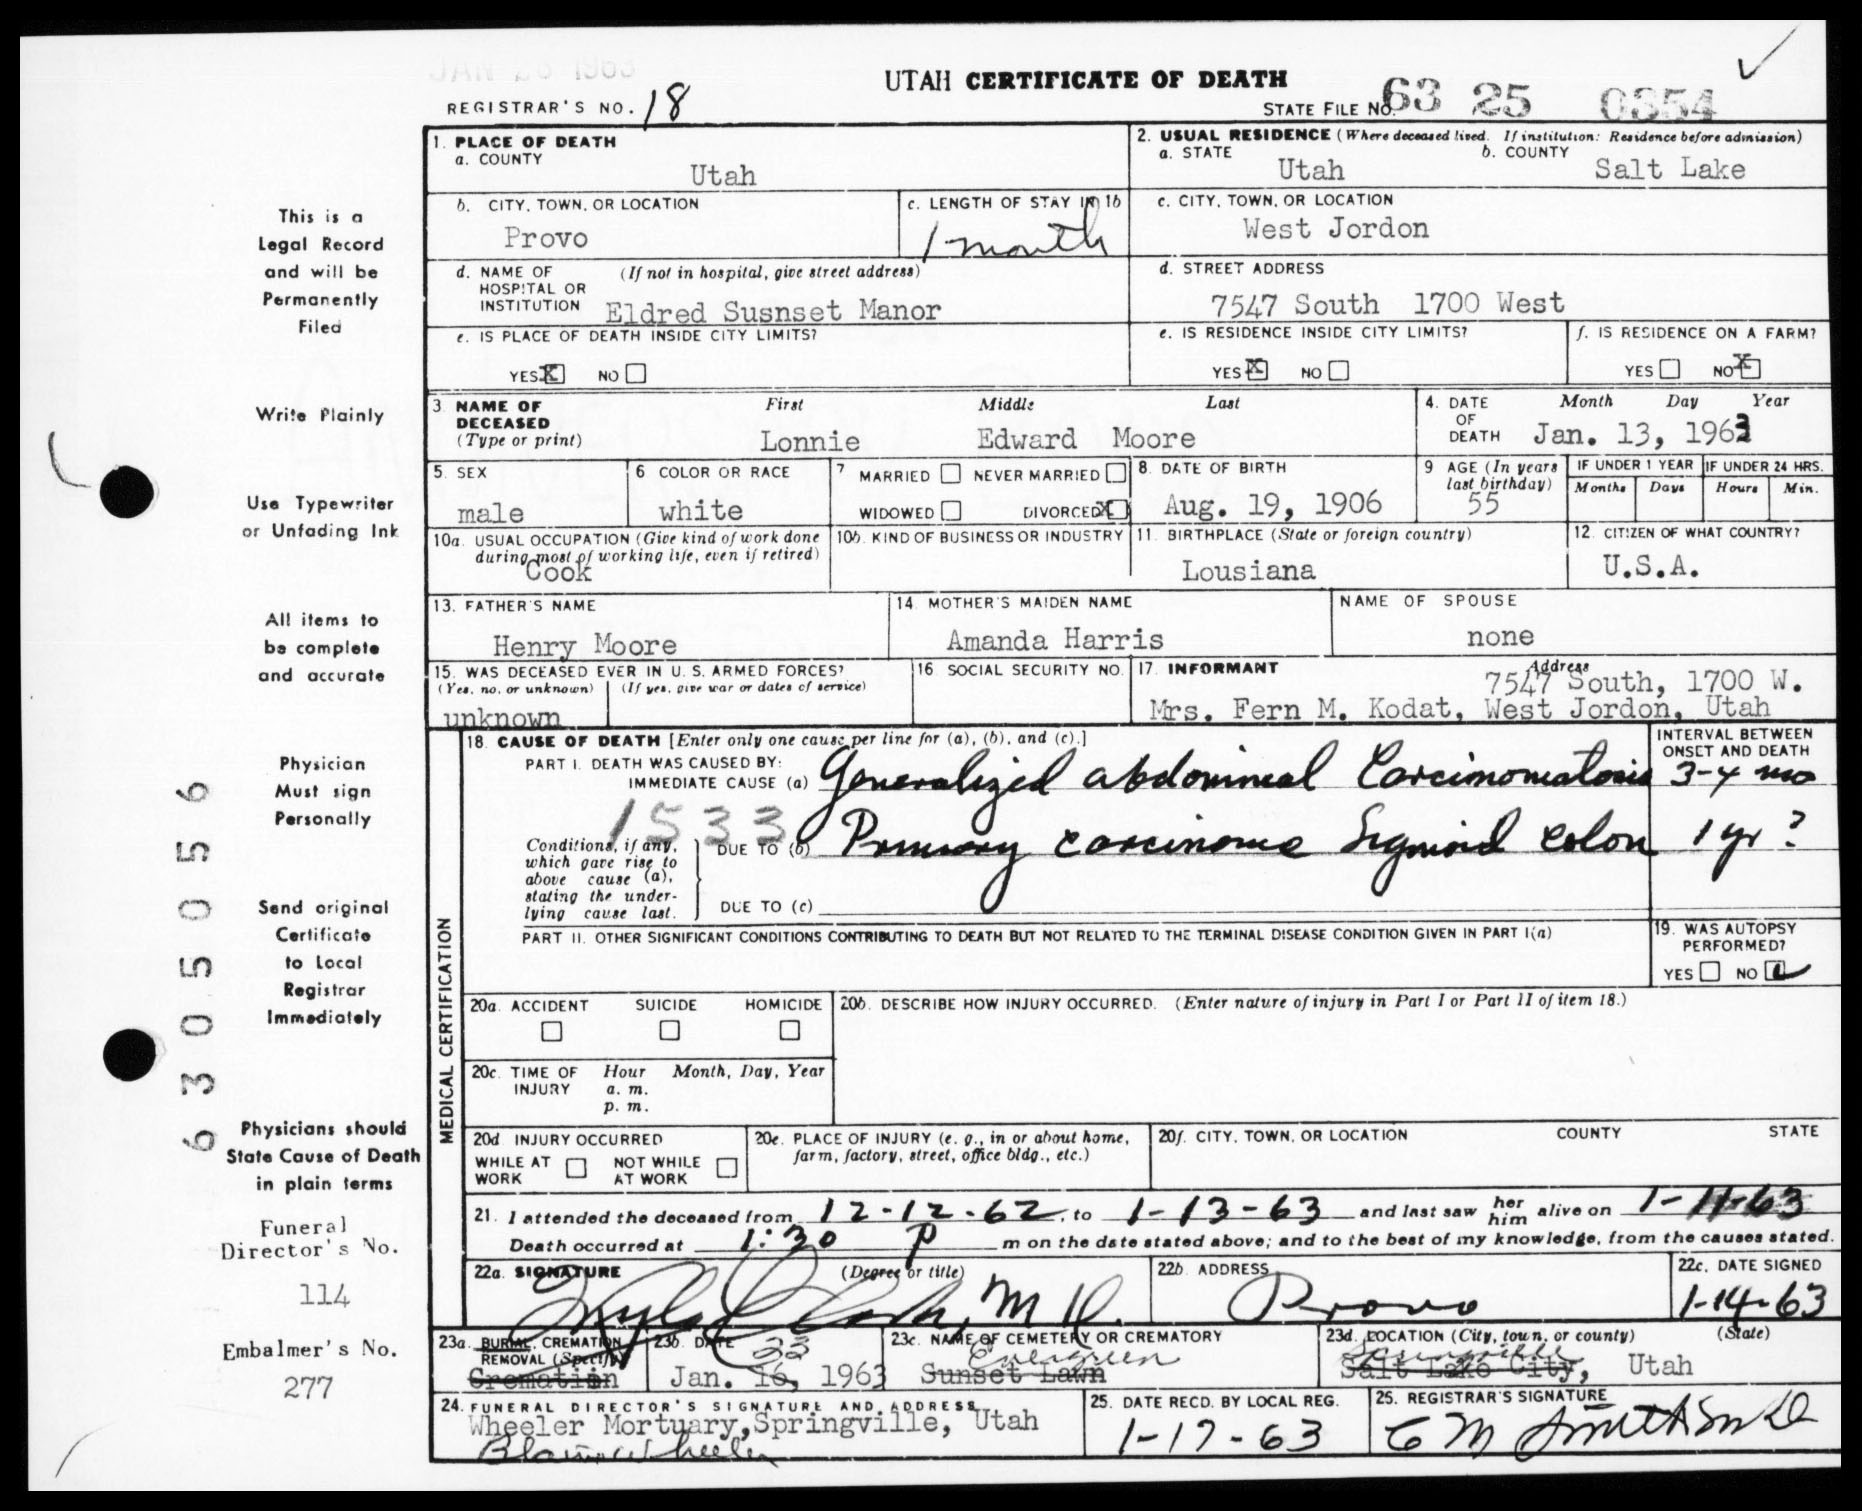 JAN 28 1963
UTAH CERTIFICATE OF DEATH
REGISTRAR'S NO. 18
STATE FILE NO. 63 25 0354
1. PLACE OF DEATH
a. COUNTY
Utah
2. USUAL RESIDENCE (Where deceased lived. If institution: Residence before admission)
a. STATE b. COUNTY
Utah Salt Lake
b. CITY, TOWN, OR LOCATION
Provo
c. LENGTH OF STAY IN 1b
1 month
c. CITY, TOWN, OR LOCATION
West Jordon
d. NAME OF (If not in hospital, give street address)
HOSPITAL OR
INSTITUTION Eldred Susnset Manor
d. STREET ADDRESS
7547 South 1700 West
e. IS PLACE OF DEATH INSIDE CITY LIMITS?
YES X NO
e. IS RESIDENCE INSIDE CITY LIMITS?
YES X NO
f. IS RESIDENCE ON A FARM?
YES NO X
3. NAME OF First Middle Last
DECEASED
(Type or print) Lonnie Edward Moore
4. DATE Month Day Year
OF
DEATH Jan. 13, 1963
5. SEX
male
6 COLOR OR RACE
white
7 MARRIED NEVER MARRIED
WIDOWED DIVORCED X
8. DATE OF BIRTH
Aug. 19, 1906
9 AGE (In years
last birthday)
55
IF UNDER 1 YEAR IF UNDER 24 HRS.
Months Days Hours Min.
10a. USUAL OCCUPATION (Give kind of work done
during most of working life, even if retired)
Cook
10b. KIND OF BUSINESS OR INDUSTRY
11. BIRTHPLACE (State or foreign country)
Lousiana
12. CITIZEN OF WHAT COUNTRY?
U.S.A.
13. FATHER'S NAME
Henry Moore
14. MOTHER'S MAIDEN NAME
Amanda Harris
NAME OF SPOUSE
none
15. WAS DECEASED EVER IN U. S. ARMED FORCES?
(Yes, no, or unknown) (If yes, give war or dates of service)
unknown
16 SOCIAL SECURITY NO.
17. INFORMANT Address
7547 South, 1700 W.
Mrs. Fern M. Kodat, West Jordon, Utah
MEDICAL CERTIFICATION
18. CAUSE OF DEATH [Enter only one cause per line for (a), (b), and (c).]
PART I. DEATH WAS CAUSED BY:
IMMEDIATE CAUSE (a) Generalized abdominal Carcinomatosis
INTERVAL BETWEEN
ONSET AND DEATH
3-4 mo
1533
Conditions, if any,
which gave rise to
above cause (a),
stating the under-
lying cause last.
DUE TO (b) Primary carcinoma Sigmoid colon 1 yr ?
DUE TO (c)
PART II. OTHER SIGNIFICANT CONDITIONS CONTRIBUTING TO DEATH BUT NOT RELATED TO THE TERMINAL DISEASE CONDITION GIVEN IN PART I(a)
19. WAS AUTOPSY
PERFORMED?
YES NO
20a. ACCIDENT SUICIDE HOMICIDE
20b. DESCRIBE HOW INJURY OCCURRED. (Enter nature of injury in Part I or Part II of item 18.)
20c. TIME OF Hour Month, Day, Year
INJURY a. m.
p. m.
20d INJURY OCCURRED
WHILE AT NOT WHILE
WORK AT WORK
20e. PLACE OF INJURY (e. g., in or about home,
farm, factory, street, office bldg., etc.)
20f. CITY, TOWN, OR LOCATION COUNTY STATE
21. I attended the deceased from 12-12-62, to 1-13-63 and last saw her him alive on 1-11-63
Death occurred at 1:30 P m on the date stated above; and to the best of my knowledge, from the causes stated.
22a. SIGNATURE (Degree or title)
M.D.
22b. ADDRESS
Provo
22c. DATE SIGNED
1-14-63
23a. BURIAL, CREMATION,
REMOVAL (Specify)
Cremation
23b. DATE 23
Jan. 16, 1963
23c. NAME OF CEMETERY OR CREMATORY
Evergreen
Sunset Lawn
23d. LOCATION (City, town, or county) (State)
Springville
Salt Lake City, Utah
24. FUNERAL DIRECTOR'S SIGNATURE AND ADDRESS
Wheeler Mortuary, Springville, Utah
Blaine Wheeler
25. DATE RECD. BY LOCAL REG.
1-17-63
25. REGISTRAR'S SIGNATURE
This is a
Legal Record
and will be
Permanently
Filed
Write Plainly
Use Typewriter
or Unfading Ink
All items to
be complete
and accurate
Physician
Must sign
Personally
Send original
Certificate
to Local
Registrar
Immediately
Physicians should
State Cause of Death
in plain terms
Funeral
Director's No.
114
Embalmer's No.
277
63050556